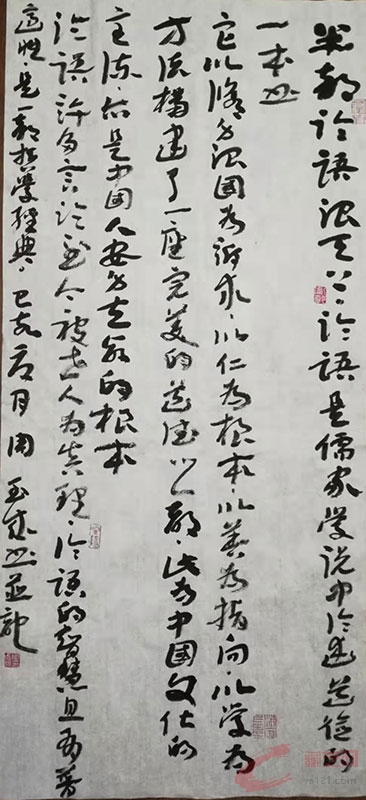 半部论语治天下论语是儒家学说中论述道德的
一本书
它以修身治国为诉求以仁为根本以善为指向以学为
方法搭建了一座完美的道德中国文化的
主流亦是中国人安身立命的根本
论语许多言论至今被世人为真理论语的智慧且有普
适性是一部哲学经典己亥月周玉成书并记